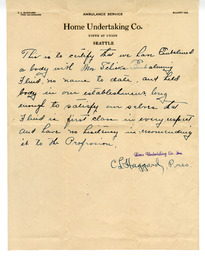 AMBULANCE SERVICE
Home Undertaking Co.
NINTH AT UNION
SEATTLE
This is to certify that we have Embalmed
a body with Embalming
Fluid, no name to date, and held
body in our establishment long
enough to satisfy our selves its
Fluid is first class in every respect
and have no hesitancy in recommending
it to the Profession.
Home Undertaking Co. Inc.
C L Haggard, Pres.